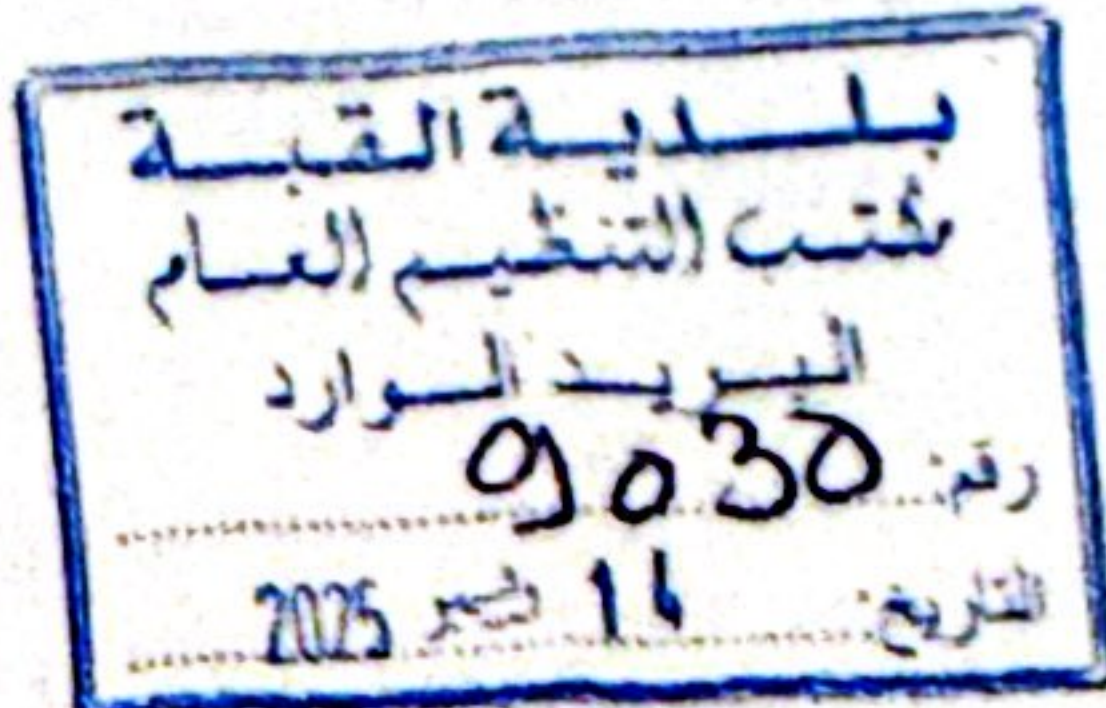 بلدية القبة
مكتب التنظيم العام
البريد الوارد
رقم: 9030
التاريخ: 14 ديسمبر 2025